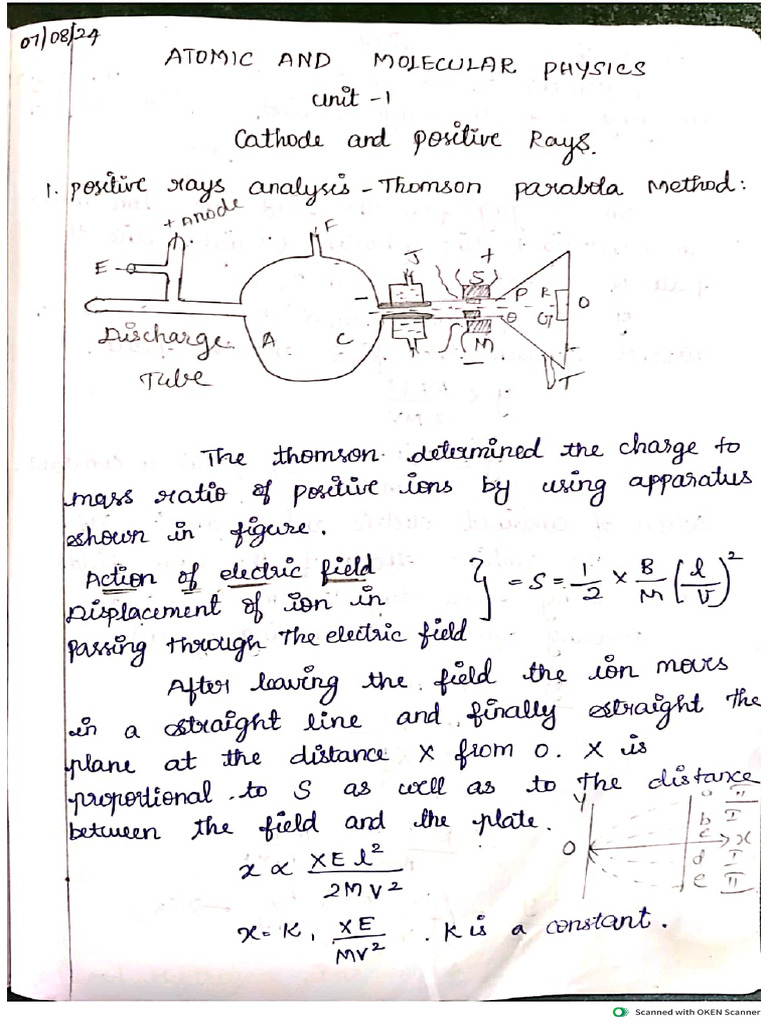 07/08/24
ATOMIC AND MOLECULAR PHYSICS
unit -1
Cathode and positive Rays.
1. positive rays analysis - Thomson parabola Method:
+ Anode
F
E
J
+
S
P
R
O
G
Discharge
Tube
A
C
-
M
-
T
The thomson determined the charge to
mass ratio of positive ions by using apparatus
shown in figure.
Action of electric field
Displacement of ion in
passing through the electric field
} = S = 1/2 × B/M (l/V)²
After leaving the field the ion moves
in a straight line and finally straight the
plane at the distance X from O. X is
proportional to S as well as to the distance
between the field and the plate.
Y
O
x
a II
b I
c
d I
e II
x ∝ XEl²/2MV²
x = K, XE/MV² . K is a constant.
Scanned with OKEN Scanner